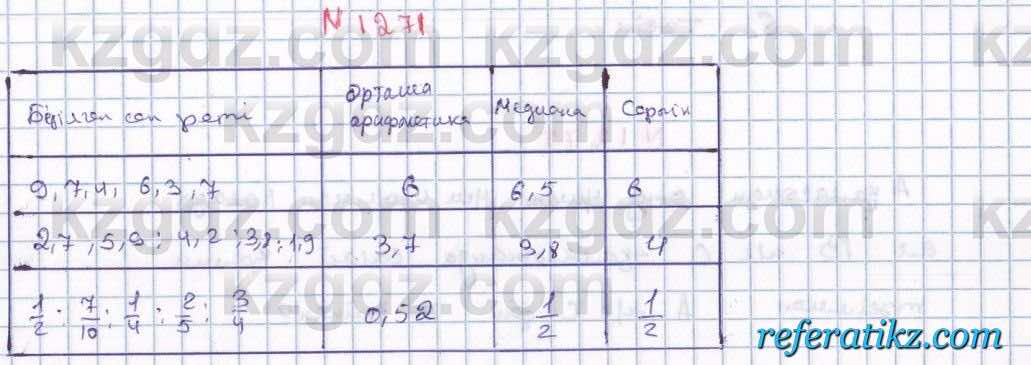 N 1271
kzgdz.com kzgdz.com
Берілген сан реті
Орташа арифметика
Медиана
Сермін
9, 7, 4, 6, 3, 7
6
6,5
6
2,7, 5,9; 4,2; 3,8; 1,9
3,7
3,8
4
1/2; 7/10; 1/4; 2/5; 3/4
0,52
1/2
1/2
referatikz.com